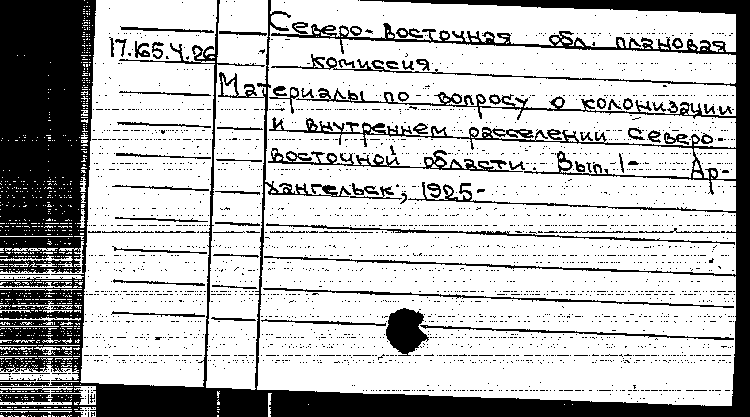 Северо-Восточная обл. плановая
17.165.4.26
комиссия.
Материалы по вопросу о колонизации
и внутреннем расселении Северо-
восточной области. Вып. 1- Ар-
хангельск, 1925-